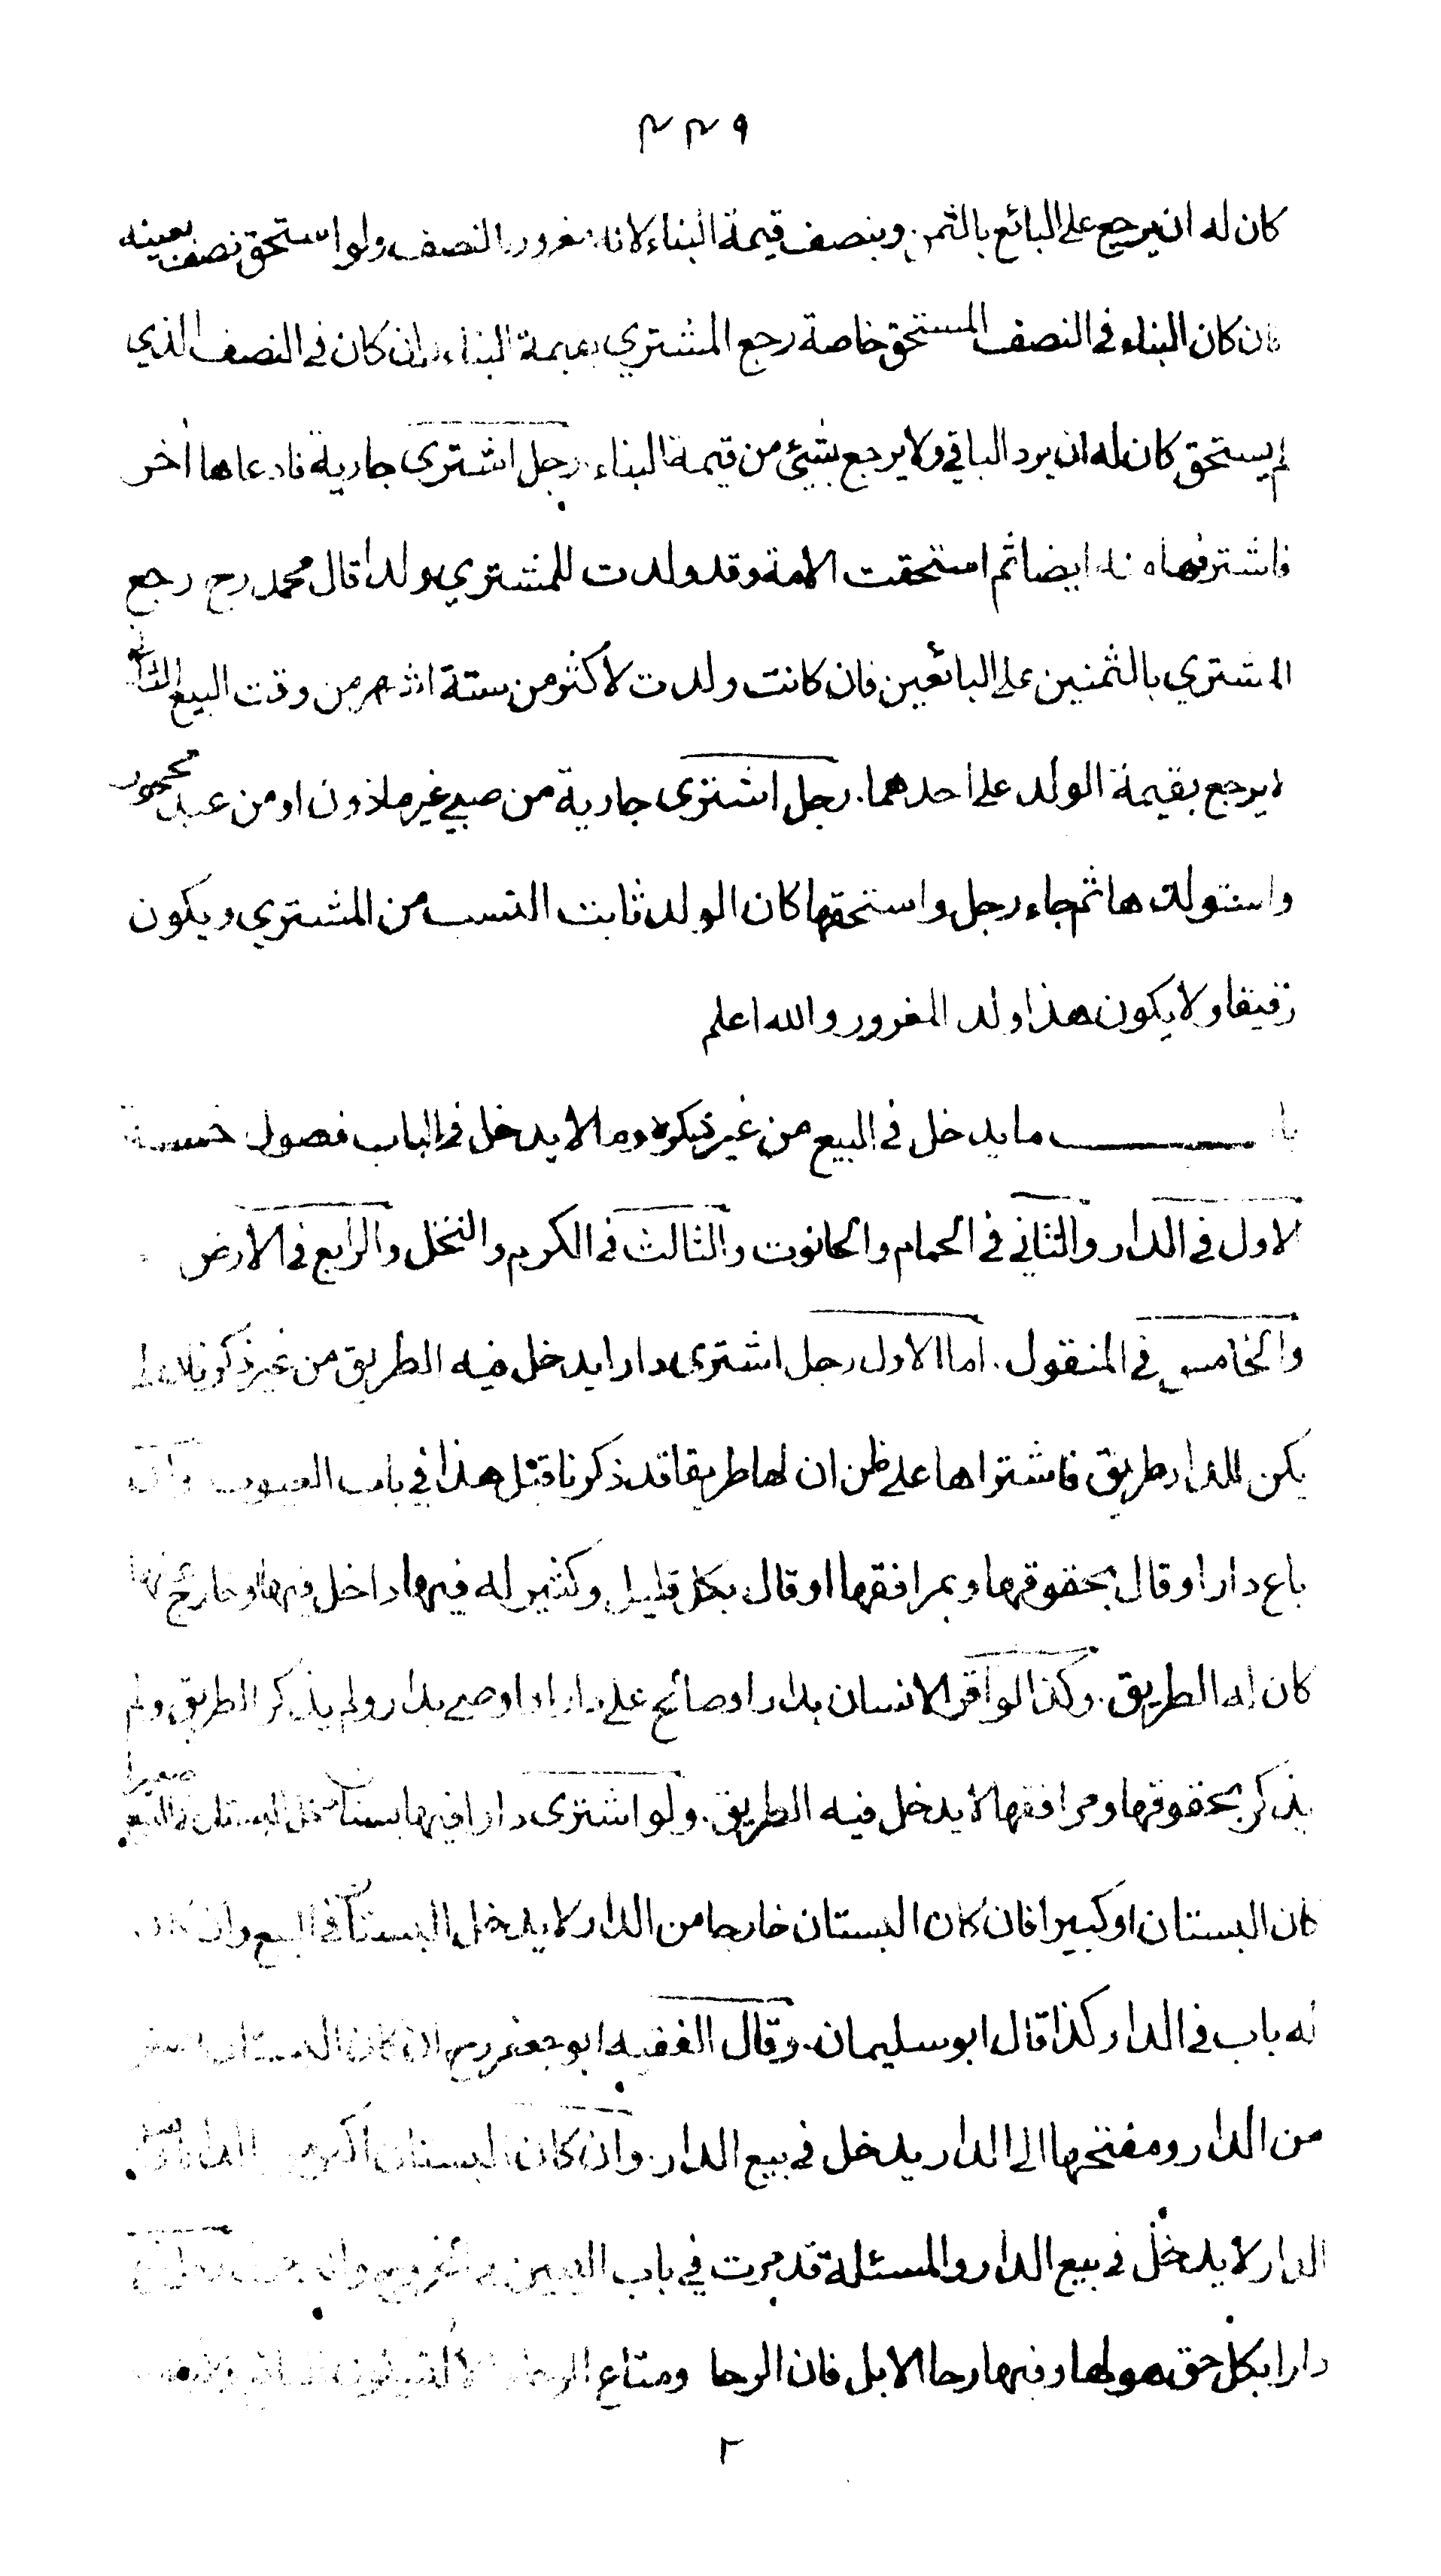 ٣٣٩
كان له ان يرجع على البائع بالثمن وبنصف قيمة البناء لانه مغرور النصف ولو استحق نصف بعينه
فان كان البناء في النصف المستحق خاصة رجع المشتري بقيمة البناء وان كان في النصف الذي
لم يستحق كان له ان يرد الباقي ولا يرجع بشيئ من قيمة البناء. رجل اشترى جارية فادعاها اخر
فاشترىها منه ايضا ثم استحقت الامة وقد ولدت للمشتري ولدا قال محمد رح رجع
المشتري بالثمنين على البائعين فان كانت ولدت لاكثر من ستة اشهر من وقت البيع الثاني
لا يرجع بقيمة الولد على احدهما. رجل اشترى جارية من صبي غير ماذون او من عبد محجور
واستولدها ثم جاء رجل واستحقها كان الولد ثابت النسب من المشتري ويكون
رقيقا ولا يكون هذا ولد المغرور والله اعلم
باب ما يدخل في البيع من غير ذكره وما لا يدخل في الباب فصول خمسة
الاول في الدار والثاني في الحمام والحانوت والثالث في الكرم والنخل والرابع في الارض
والخامس في المنقول. اما الاول رجل اشترى دارا يدخل فيه الطريق من غير ذكر فان لم
يكن للدار طريق فاشتراها على ظن ان لها طريقا قد ذكرنا قبل هذا في باب العيوب وان
باع دارا وقال بحقوقها وبمرافقها او قال بكل قليل وكثير له فيها داخل فيها وخارج منها
كان له الطريق. وكذا لو اقر لانسان بدار او صالح على دار او اوصى بدار ولم يذكر الطريق ولم
يذكر بحقوقها ومرافقها لا يدخل فيه الطريق. ولو اشترى دارا فيها بستان يدخل البستان في البيع صغيرا
كان البستان او كبيرا فان كان البستان خارجا من الدار لا يدخل البستان في البيع وان كان
له باب في الدار كذا قال ابو سليمان. وقال الفقيه ابو جعفر رح ان كان البستان اصغر
من الدار ومفتحها الى الدار يدخل في بيع الدار. وان كان البستان اكبر من الدار
الدار لا يدخل في بيع الدار والمسئلة قد مرت في باب اليمين
دارا بكل حق هو لها وفيها رحا الابل فان الرحا ومتاع الرحا
٢